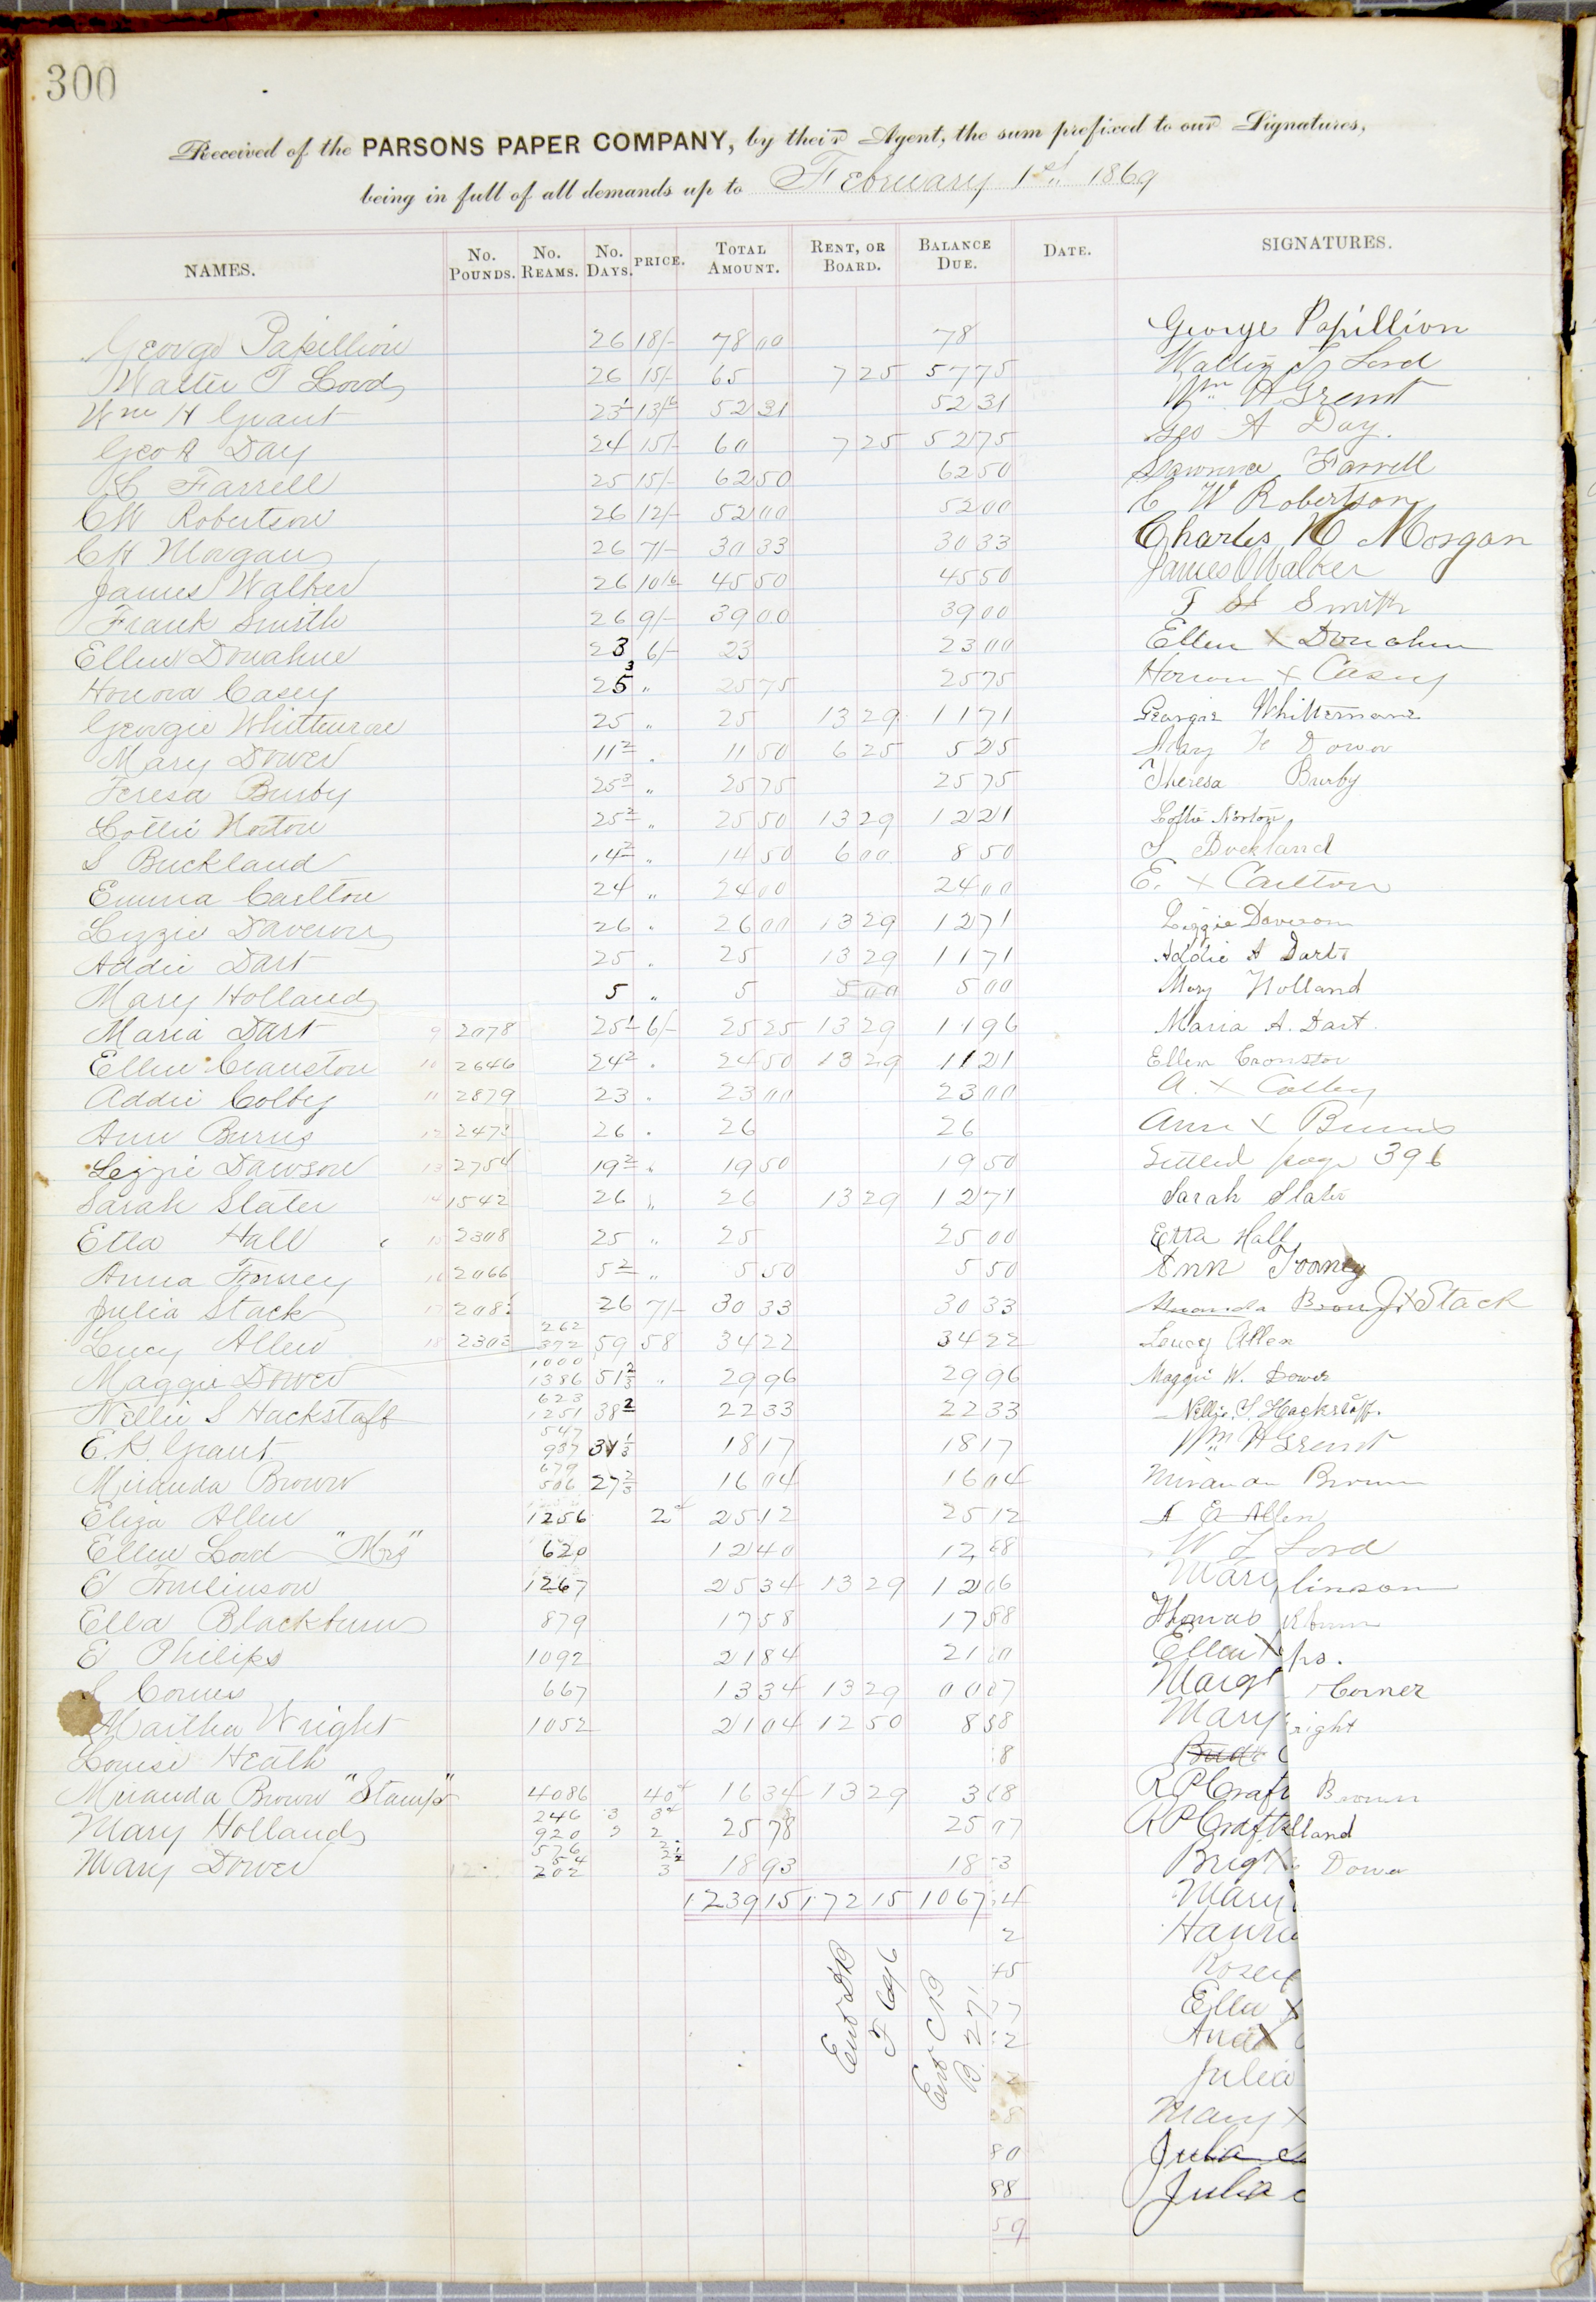 300
Received of the PARSONS PAPER COMPANY, by their Agent, the sum prefixed to our Signatures,
being in full of all demands up to February 1st 1869
NAMES. No. POUNDS. No. REAMS. No. DAYS. PRICE. TOTAL AMOUNT. RENT, OR BOARD. BALANCE DUE. DATE. SIGNATURES.
George Papillion 26 18/- 78 00 78 George Papillion
Walter T Lord 26 15/- 65 7 25 57 75 Lord
Wm H Grant 23 1 13/6 52 31 52 31 Wm H Grant
Geo A Day 24 15/- 60 7 25 52 75 Geo A Day.
L Farrell 25 15/- 62 50 62 50 Farrell
CW Robertson 26 12/- 52 00 52 00 C W Robertson
CH Morgan 26 7/- 30 33 30 33 Charles H Morgan
James Walker 26 10/6 45 50 45 50 James Walker
Frank Smith 26 9/- 39 00 39 00 F Smith
Ellen Donahue 23 6/- 23 23 00 Ellen X Donahue
Honora Casey 25 3 " 25 75 25 75 X Casey
Georgie Whittemore 25 " 25 13 29 11 71 Georgie Whittemore
Mary Dower 11 2 " 11 50 6 25 5 25 Mary Dower
Teresa Burby 25 3 " 25 75 25 75 Theresa Burby
Lottie Norton 25 2 " 25 50 13 29 12 21 Lottie Norton
S Buckland 14 2 " 14 50 6 00 8 50 S Buckland
Emma Carlton 24 " 24 00 24 00 E. X Carlton
Lizzie Daveron 26 " 26 00 13 29 12 71 Lizzie Daveron
Addie Dart 25 " 25 13 29 11 71 Addie A Dart
Mary Holland 5 " 5 5 00 5 00 Mary Holland
Maria Dart 9 2078 25 1 6/- 25 25 13 29 11 96 Maria A. Dart.
Ellen Cranston 10 2646 24 2 " 24 50 13 29 11 21 Ellen Cranston
Addie Colby 11 2879 23 " 23 00 23 00 A. X Colby
Ann Burns 12 247 26 " 26 26 Ann X Burns
Lizzie Dawson 13 2754 19 2 " 19 50 19 50 Settled page 396
Sarah Slater 14 1542 26 " 26 13 29 12 71 Sarah Slater
Etta Hall 15 2308 25 " 25 25 00 Etta Hall
Anna Toomey 16 2066 5 2 " 5 50 5 50 Ann Toomey
Julia Stack 17 208 26 7/- 30 33 30 33 J X Stack
Lucy Allen 18 2303 262 372 59 58 34 22 34 22 Lucy Allen
Maggie Dower 1000 1386 51 2/3 " 29 96 29 96 Maggie W. Dower
Nellie S Hackstaff 623 1251 38 2 22 33 22 33 Nellie S. Hackstaff.
E. H. Grant 547 937 31 1/3 18 17 18 17 Wm H Grant
Miranda Brown 679 506 27 2/3 16 04 16 04 Miranda Brown
Eliza Allen 1256 2 25 12 25 12 Allen
Ellen Lord "Mrs" 620 12 40 12 W Lord
E Tomlinson 1267 25 34 13 29 12 06 Mary linson
Ella Blackburn 879 17 58 17 58 Thomas
E Philips 1092 21 84 21 Ellen X ps.
S Corner 667 13 34 13 29 00 07 Margt Corner
Martha Wright 1052 21 04 12 50 8 58 Mary right
Louise Heath 8
Miranda Brown "Stamps" 4086 40 16 34 13 29 3 R P Craft Brown
Mary Holland 246 3 3 920 2 25 78 25 R P Craft lland
Mary Dower 576 54 202 3 18 93 18 3 Dower
1239 15 172 15 1067 4 Mary
2
45 Rosey
Ent DB F Ellen X
Ent CB B 27 Ann X
Julia
Mary X
80 Julia
88 Julia
59